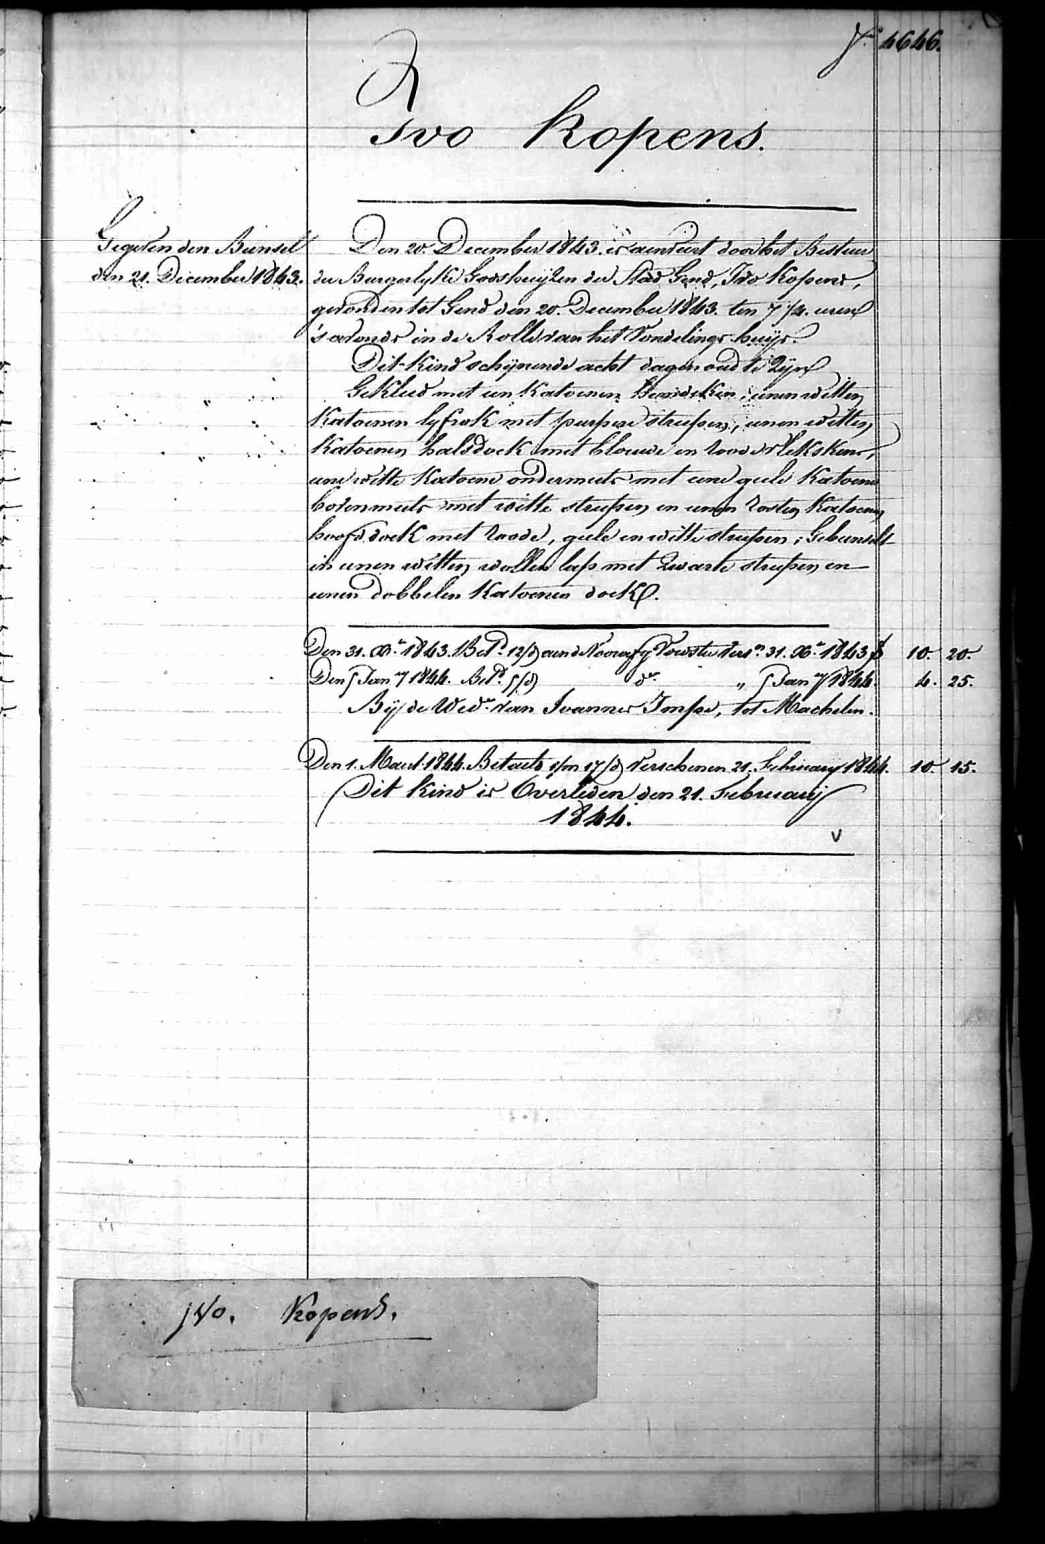 4646.
Ivo Kopens.
Gegeven den Bunsel
den 21. December 1843.
Den 20. December 1843. is aenveert door het Bestuer
der Burgerlyke Godshuijzen der Stad Gend, Ivo Kopens,
gevonden tot Gend den 20. December 1843. ten 7 1/4. uren
's avonds in de Rolle van het Vondelings-huijs.
Dit kind schijnende acht dagen oud te zijn
Gekleed met een katoenen Hemdeken, eenen witten
katoenen lyfrok met purpere streepen, eenen witten
katoenen halsdoek met blouwe en roode vlekskens,
eene witte katoene ondermuts met eene geele katoene
bovenmuts met witte streepen en eenen rosten katoenen
hoofddoek met roode, geele en witte streepen; Gebunselt
in eenen witten wollen lap met zwarte streepen en
eenen dobbelen katoenen doek.
Den 31. Xber 1843. Bet. 12/d aen de Voorste vers. 31. Xber 1843 10. 20.
Den 5 Jany 1844. Bet. 5/d do. " 5 Jany 1844. 4. 25.
Bij de Wede. van Joannes Impe, tot Machelen.
Den 1. Maert 1844. Betaelt 1/m 17/d verschenen 21. Februarij 1844. 10. 15.
Dit kind is Overleden den 21. Februarij
1844.
v
Ivo. Kopens.